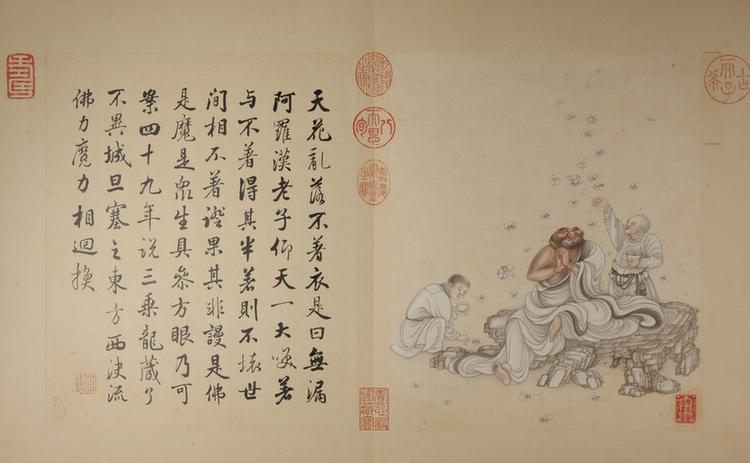 古希天子
天花亂落不著衣是曰無漏
阿羅漢老子仰天一大咲著
与不著得其半著則不壞世
间相不著證果其非謾是佛
是魔是衆生具參方眼乃可
案四十九年说三乗龍藏了
不異城旦塞之東方西决流
佛力魔力相迴換